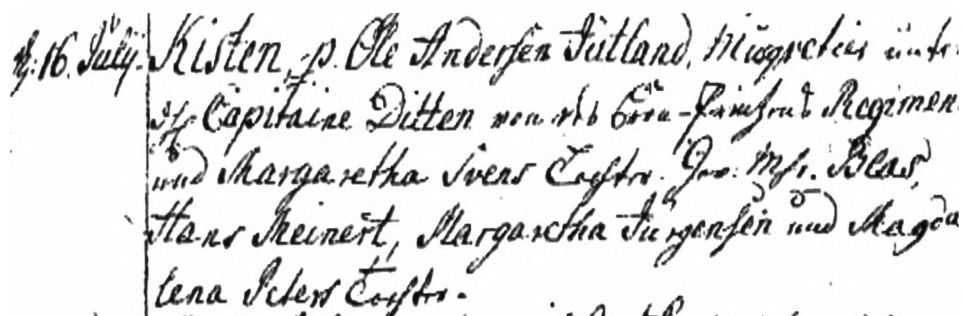 d. 16. Julÿ. Kisten, p. Ole Andersen Jütland, Musqvetier unter
H. Capitaine Ditten von des Cron-Printzens Regiment
und Margaretha Svens Tochter. Gev. Msr. Blas,
Hans Meinert, Margaretha Jürgensen und Magda
lena Peters Tochter.